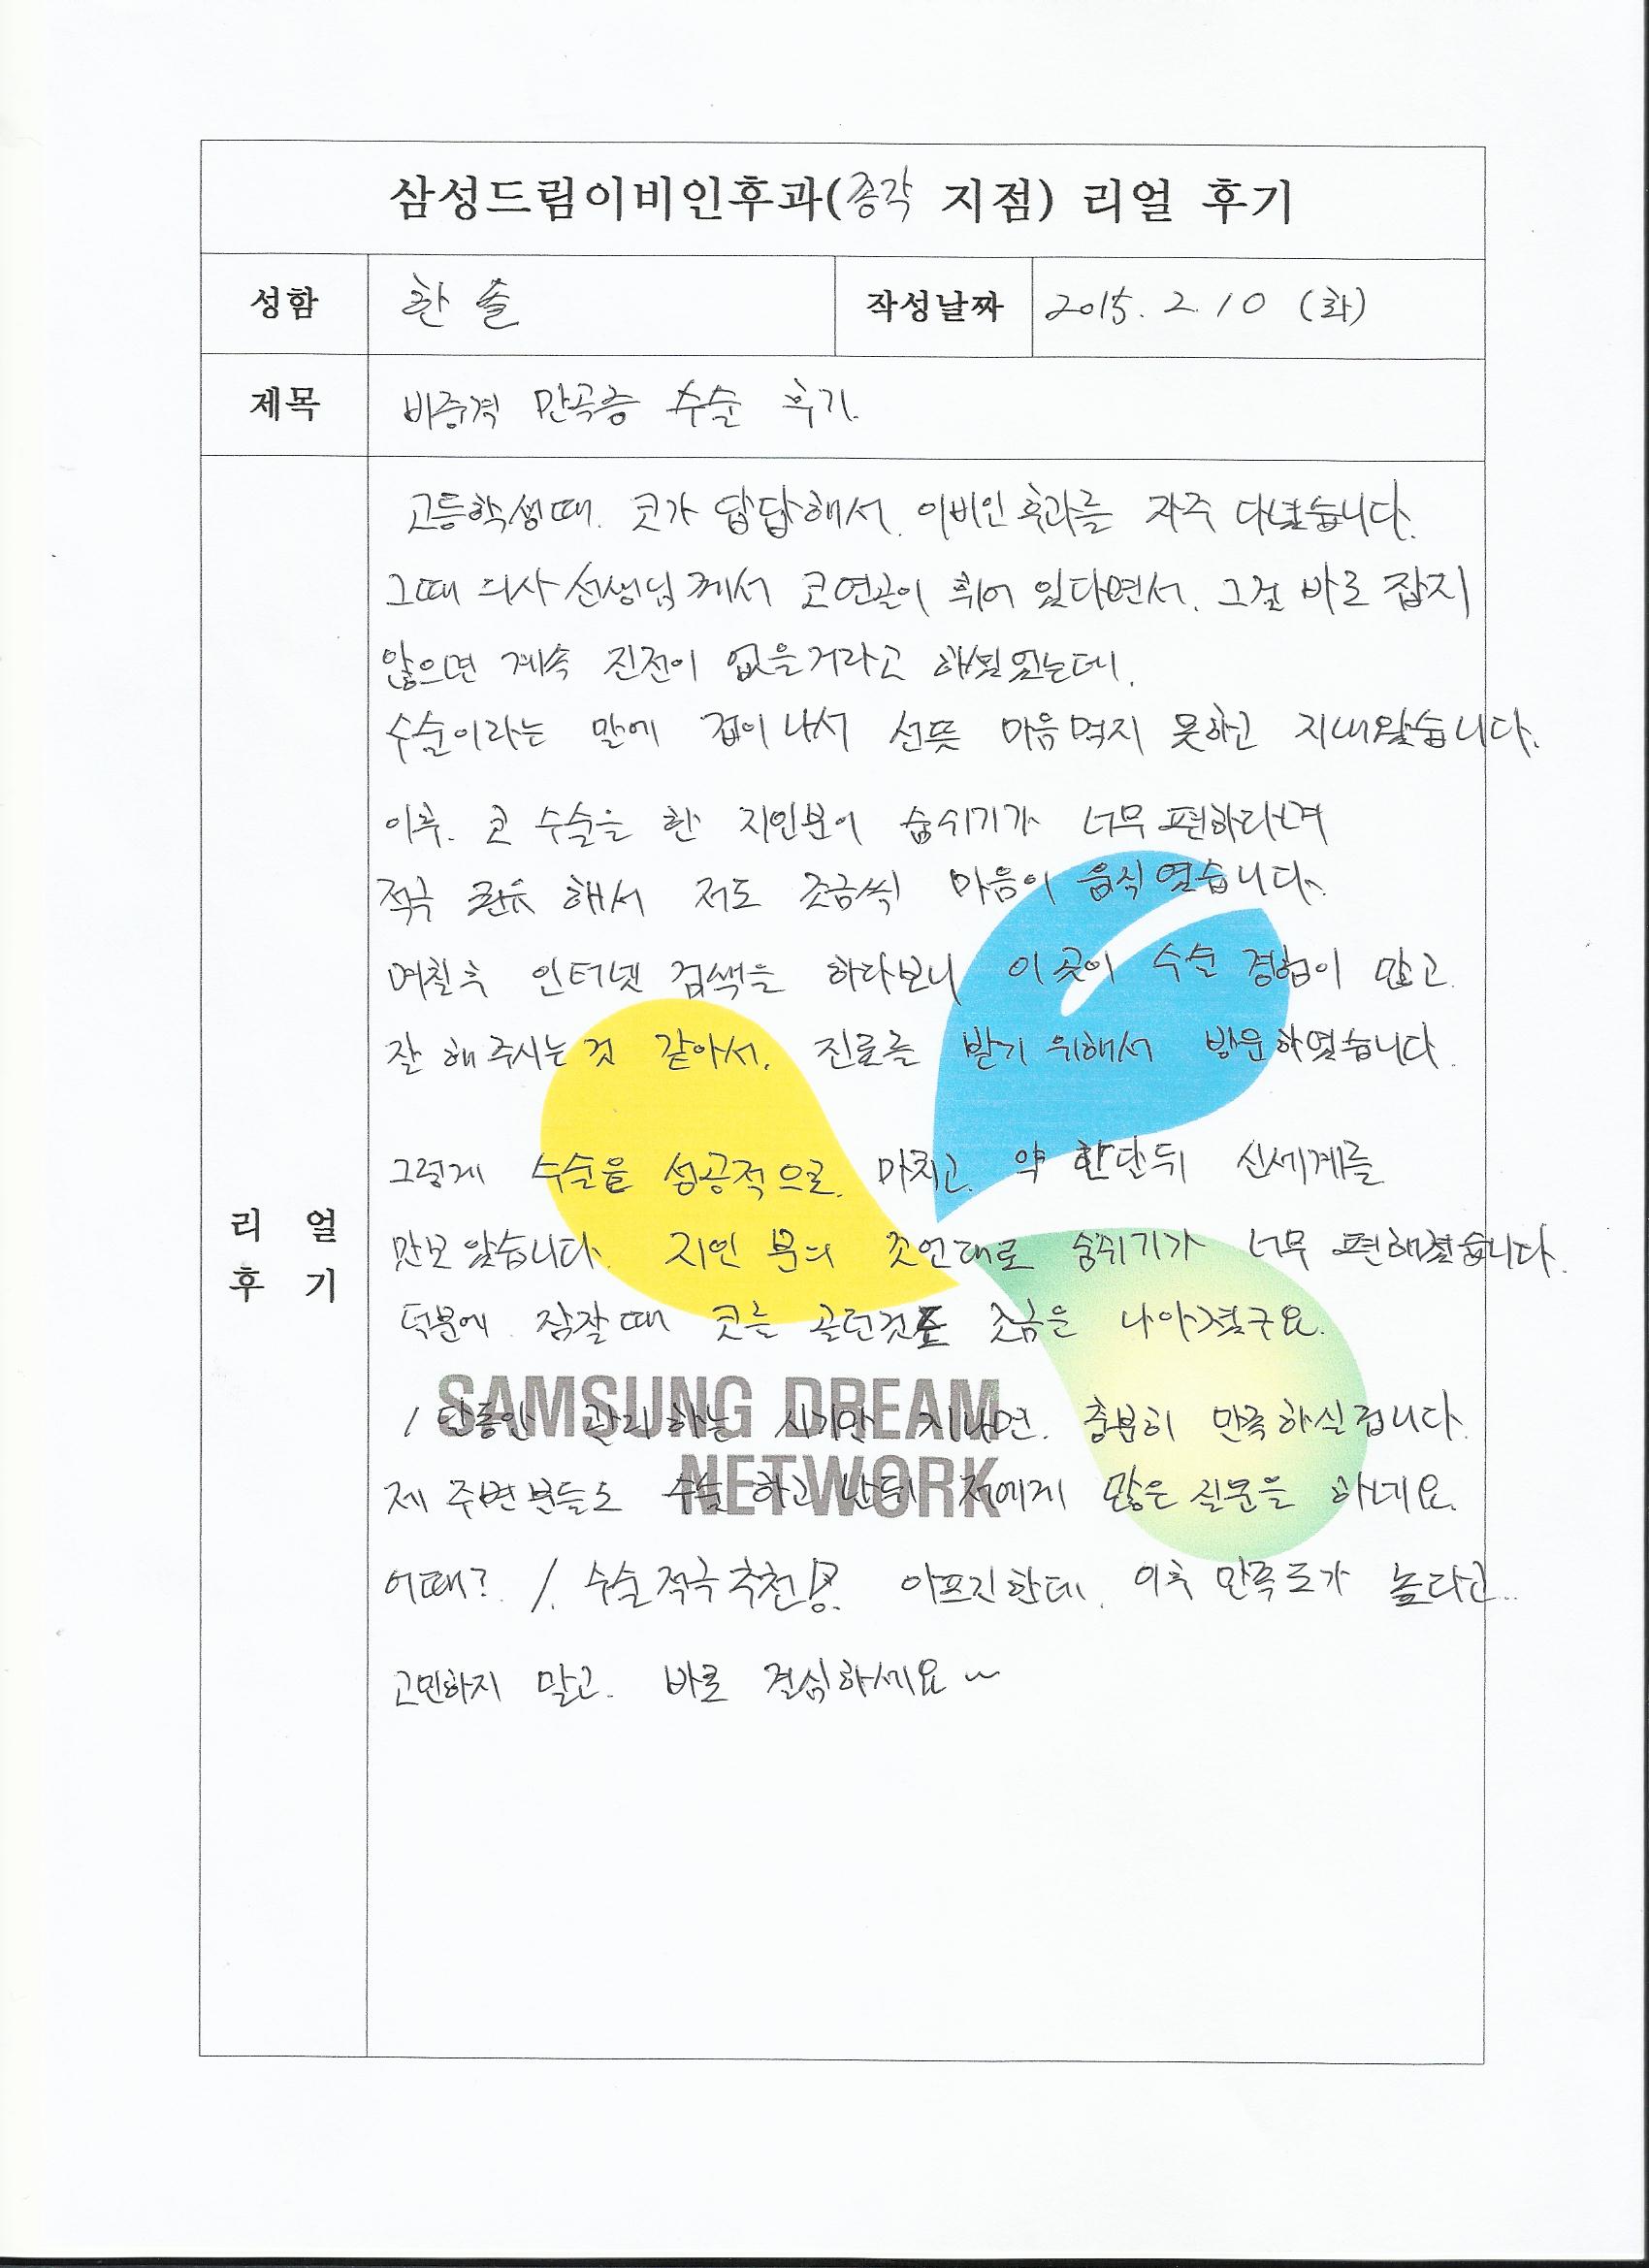 삼성드림이비인후과(종각 지점) 리얼 후기
성함 한솔 작성날짜 2015. 2. 10 (화)
제목 비중격 만곡증 수술 후기.
리 얼
후 기
고등학생때. 코가 답답해서. 이비인후과를 자주 다녔습니다.
그때 의사선생님께서 코연골이 휘어 있다면서. 그걸 바로 잡지
않으면 계속 진전이 없을거라고 하셨었는데.
수술이라는 말에 겁이나서 선뜻 마음먹지 못하고 지내왔습니다.
이후. 코 수술을 한 지인분이 숨쉬기가 너무 편하다며
적극 권유 해서 저도 조금씩 마음이 움직였습니다.
며칠후 인터넷 검색을 하다보니 이곳이 수술 경험이 많고.
잘 해주시는것 같아서. 진료를 받기 위해서 방문하였습니다.
그렇게 수술을 성공적으로. 마치고. 약 한달뒤 신세계를
맛보았습니다. 지인 분의 조언대로 숨쉬기가 너무 편해졌습니다.
덕분에. 잠잘때 코를 골던것도 조금은 나아졌구요.
1달동안 관리하는 시기만 지나면. 충분히 만족하실겁니다.
제 주변분들도 수술하고 난뒤 저에게 많은 질문을 하네요.
어때? 수술적극추천 아프긴한데. 이후 만족도가 높다고...
고민하지 말고. 바로 결심하세요~
SAMSUNG DREAM
NETWORK